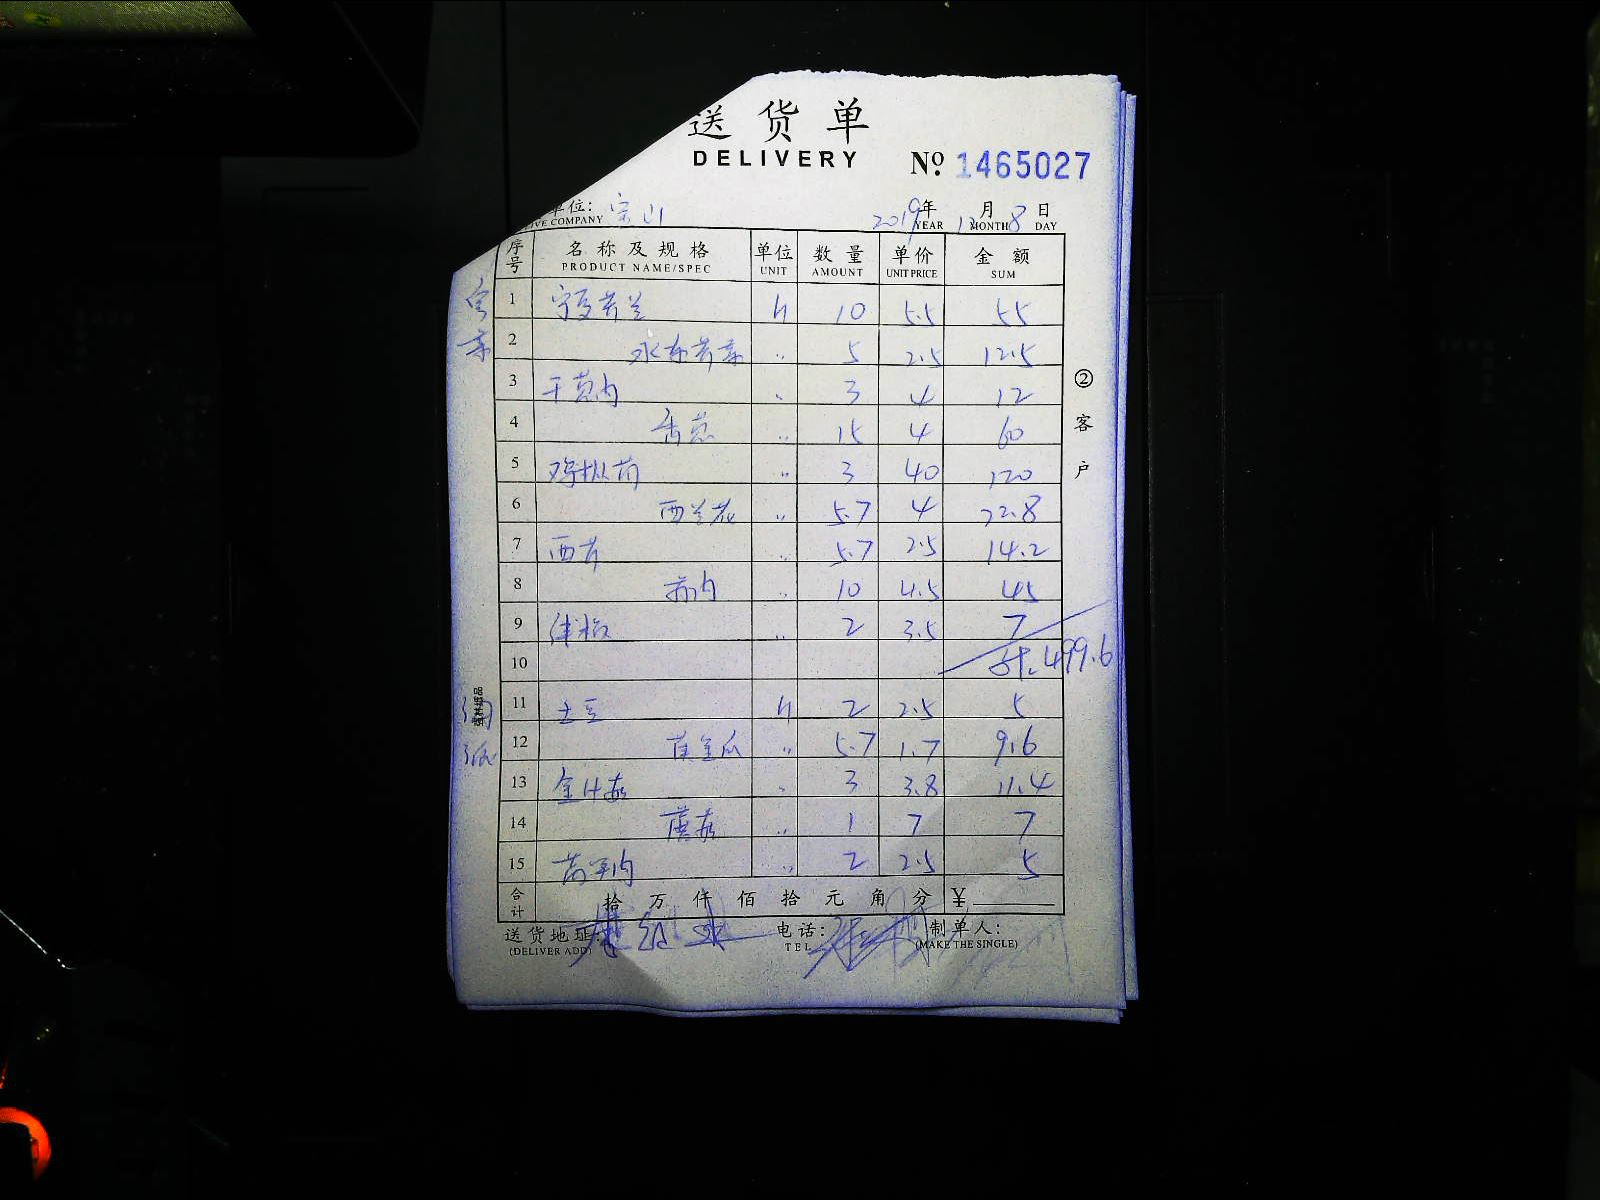 送货单
DELIVERY
№ 1465027
单位: 宗山
COMPANY
2019年 12月 8日
YEAR MONTH DAY
序号 名称及规格 单位 数量 单价 金额
PRODUCT NAME/SPEC UNIT AMOUNT UNIT PRICE SUM
1 宁夏芥兰 斤 10 5.5 55
2 水东芥菜 〃 5 2.5 12.5
3 干葱肉 〃 3 4 12
4 香葱 〃 15 4 60
5 鸡枞菌 〃 3 40 120
6 西兰花 〃 5.7 4 22.8
7 西芹 〃 5.7 2.5 14.2
8 蒜肉 〃 10 4.5 45
9 〃 2 3.5 7
10 计. 499.6
11 土豆 斤 2 2.5 5
12 黄金瓜 〃 5.7 1.7 9.6
13 金针菇 〃 3 3.8 11.4
14 〃 1 7 7
15 〃 2 2.5 5
合计 拾 万 仟 佰 拾 元 角 分 ¥
送货地址: 电话: 制单人:
(DELIVER ADD) TEL (MAKE THE SINGLE)
②客户